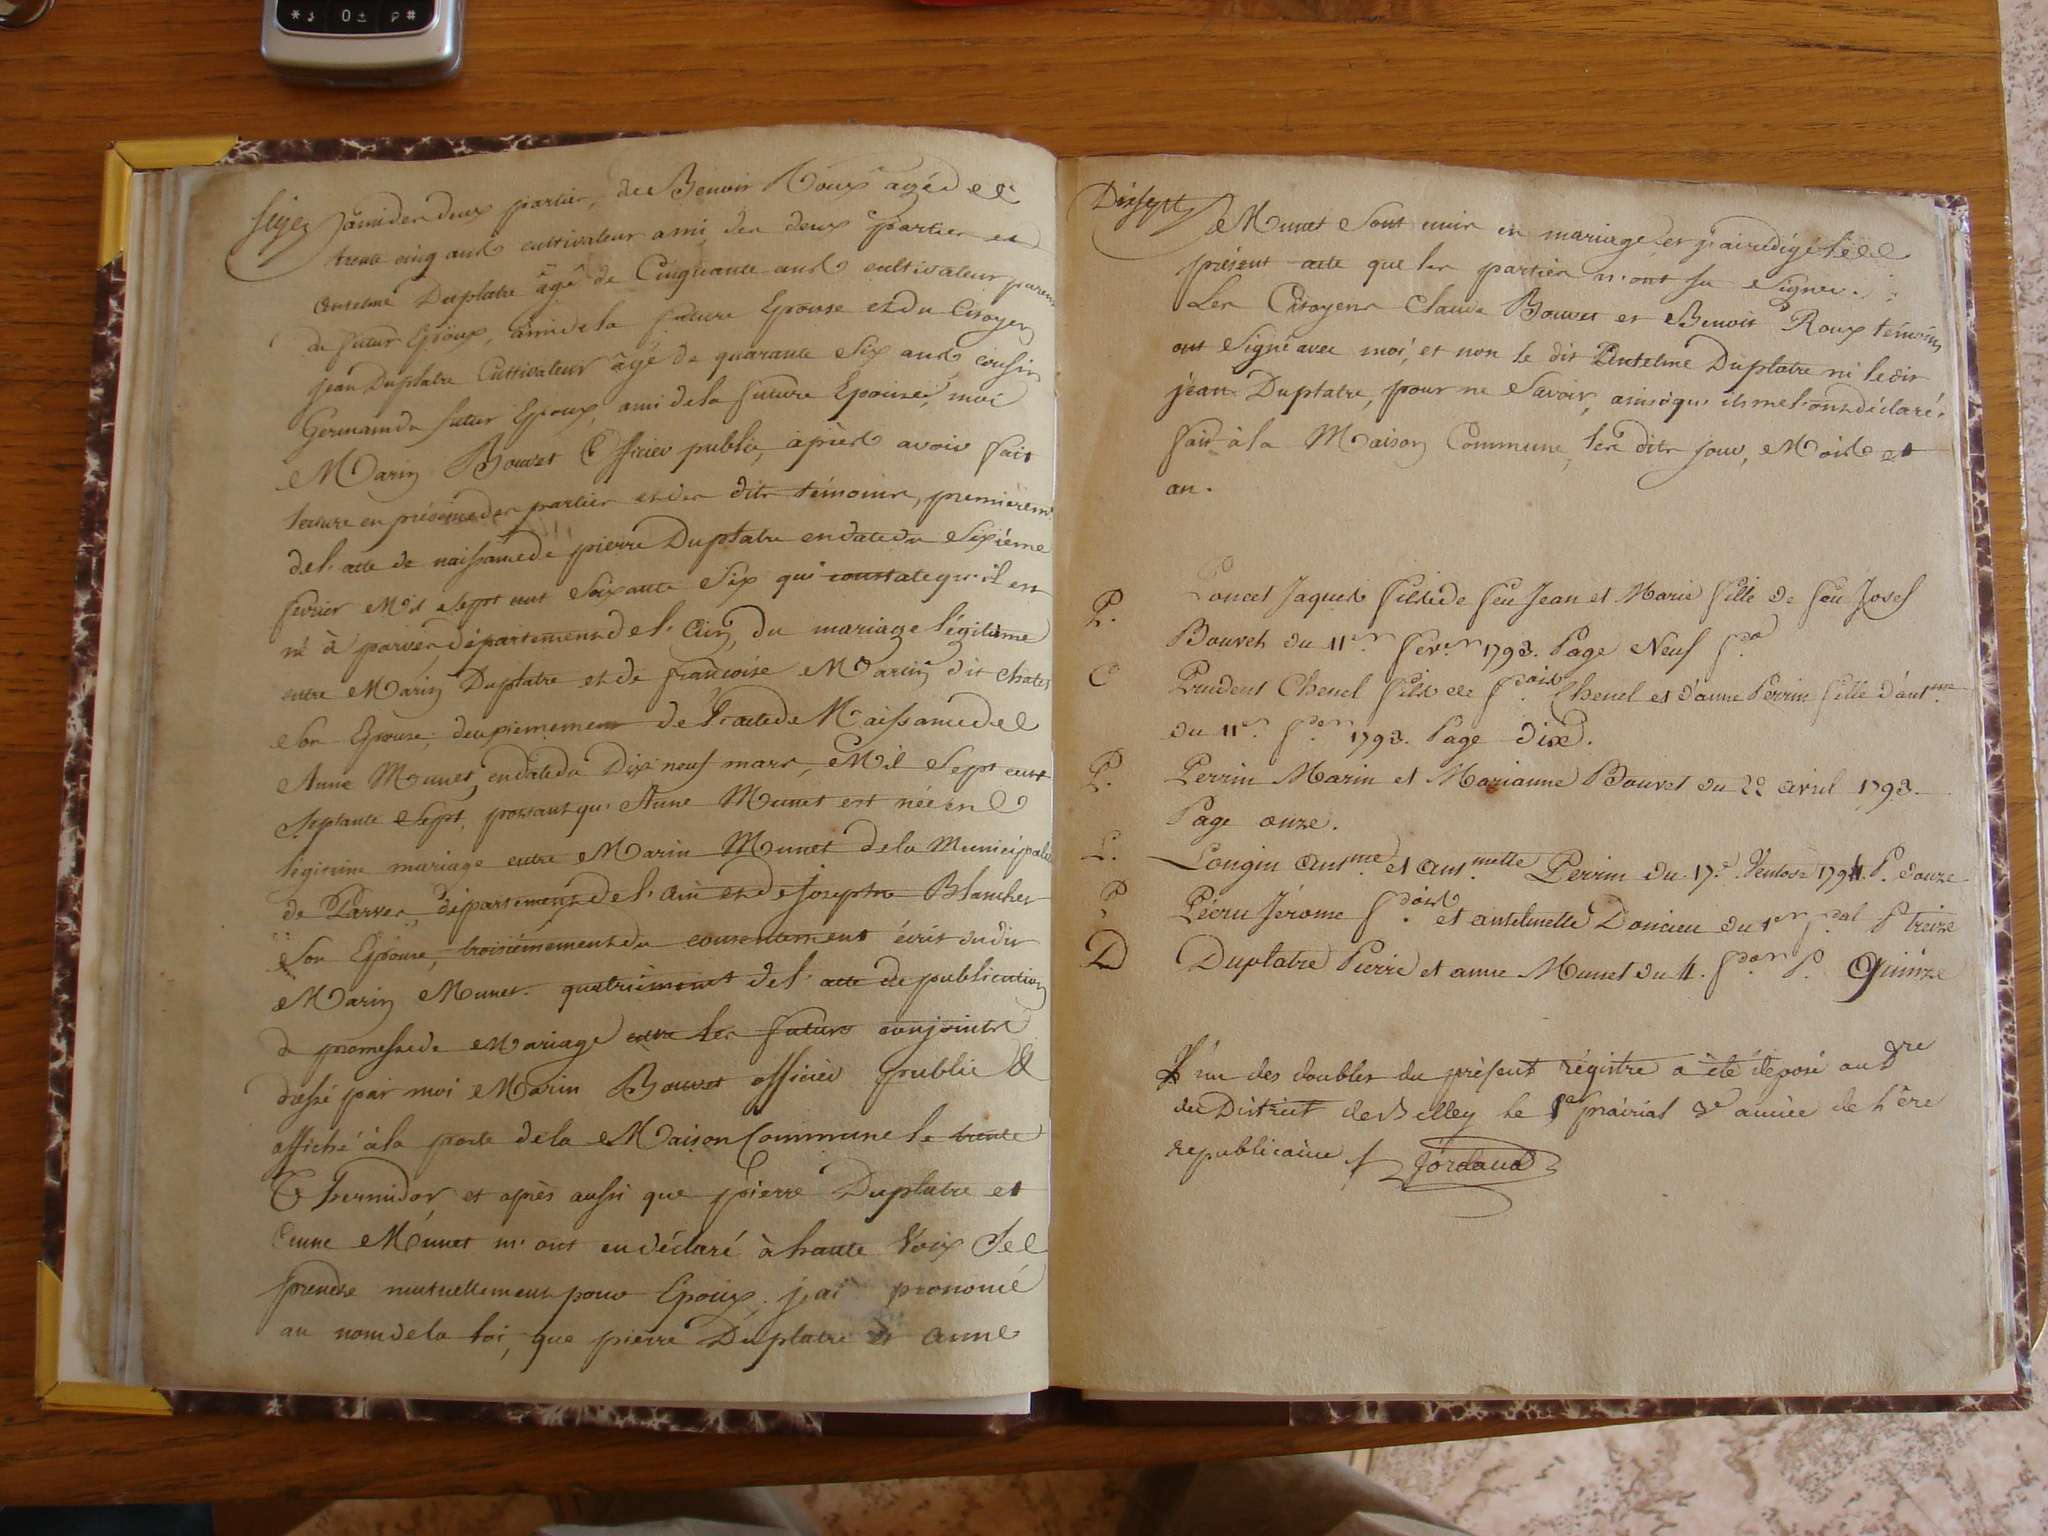 * 0 ± #
seize
ami des deux parties, de Benoit Roux agé de
trente cinq ans cultivateur ami des deux parties et
anselme Duplatre âgé de Cinquante ans cultivateur parent
du futur Epoux, ami de la future Epouse et du Citoyen
jean Duplatre Cultivateur âgé de quarante Six ans cousin
Germain du futur Epoux, ami de la future Epouse, moi
Marin Bouvet Officier public, après avoir fait
lecture en présence des parties et des dits témoins, premièremt
de l'acte de naissance de pierre Duplatre en date du Sixième
fevrier Mil Sept cent Soixante Six qui constate qu'il est
né à parves département de l'Ain, du mariage légitime
entre Marin Duplatre et de françoise Martin dit
Son Epouse; deuxiemement de l'acte de Naissance de
Anne Munet, en date du Dix neuf mars, Mil Sept cent
Septante Sept, portant qu'Anne Munet est née en
légitime mariage entre Marin Munet de la Municipalité
de Parves, département de l'ain et de Josephe Blanchet
Son Epouse, troisièmement du consentement écrit dudit
Marin Munet. quatrièment de l'acte de publication
de promesse de Mariage entre les futurs conjoints
dressé par moi Marin Bouvet officier public &
affiché à la porte de la Maison Commune le trente
Thermidor, et après aussi que pierre Duplatre et
Anne Munet m'ont eu déclaré à haute Voix Se
prendre mutuellement pour Epoux. j'ai prononcé
au nom de la loi, que pierre Duplatre et anne
Dixsept
Munet Sont unis en mariage, et j'ai rédigé le
présent acte que les parties n'ont su Signer.
Les Citoyens Claude Bouvet et Benoit Roux témoins
ont Signé avec moi, et non le dit Antelme Duplatre ni ledit
jean Duplatre, pour ne Savoir, ainsi qu'ils me l'ont déclaré.
fait à la Maison Commune, les dits jour, Mois et
an.
P. Poncet Jaques fils de feu Jean et Marie fille de feu Josef
Bouvet du 11er fevr 1793. Page Neuf
C Prudent Chenel fils de Chenel et d'anne Perrin fille d'antme
du 11er 1793. Page dix.
P. Perrin Marin et Marianne Bouvet du 22 avril 1793.
Page onze.
L. Longin antme. et antmette Perrin du 17e. Ventose 1794. P. douze
P Jérome et antelmette Doncieu du 1er P treize
D Duplatre Pierre et anne Munet du 4. P. Quinze
L'un des doubles du présent régistre a été deposé au Dre
du District de Belley le 1er prairial 3e année de l'ère
republicaine Jordand